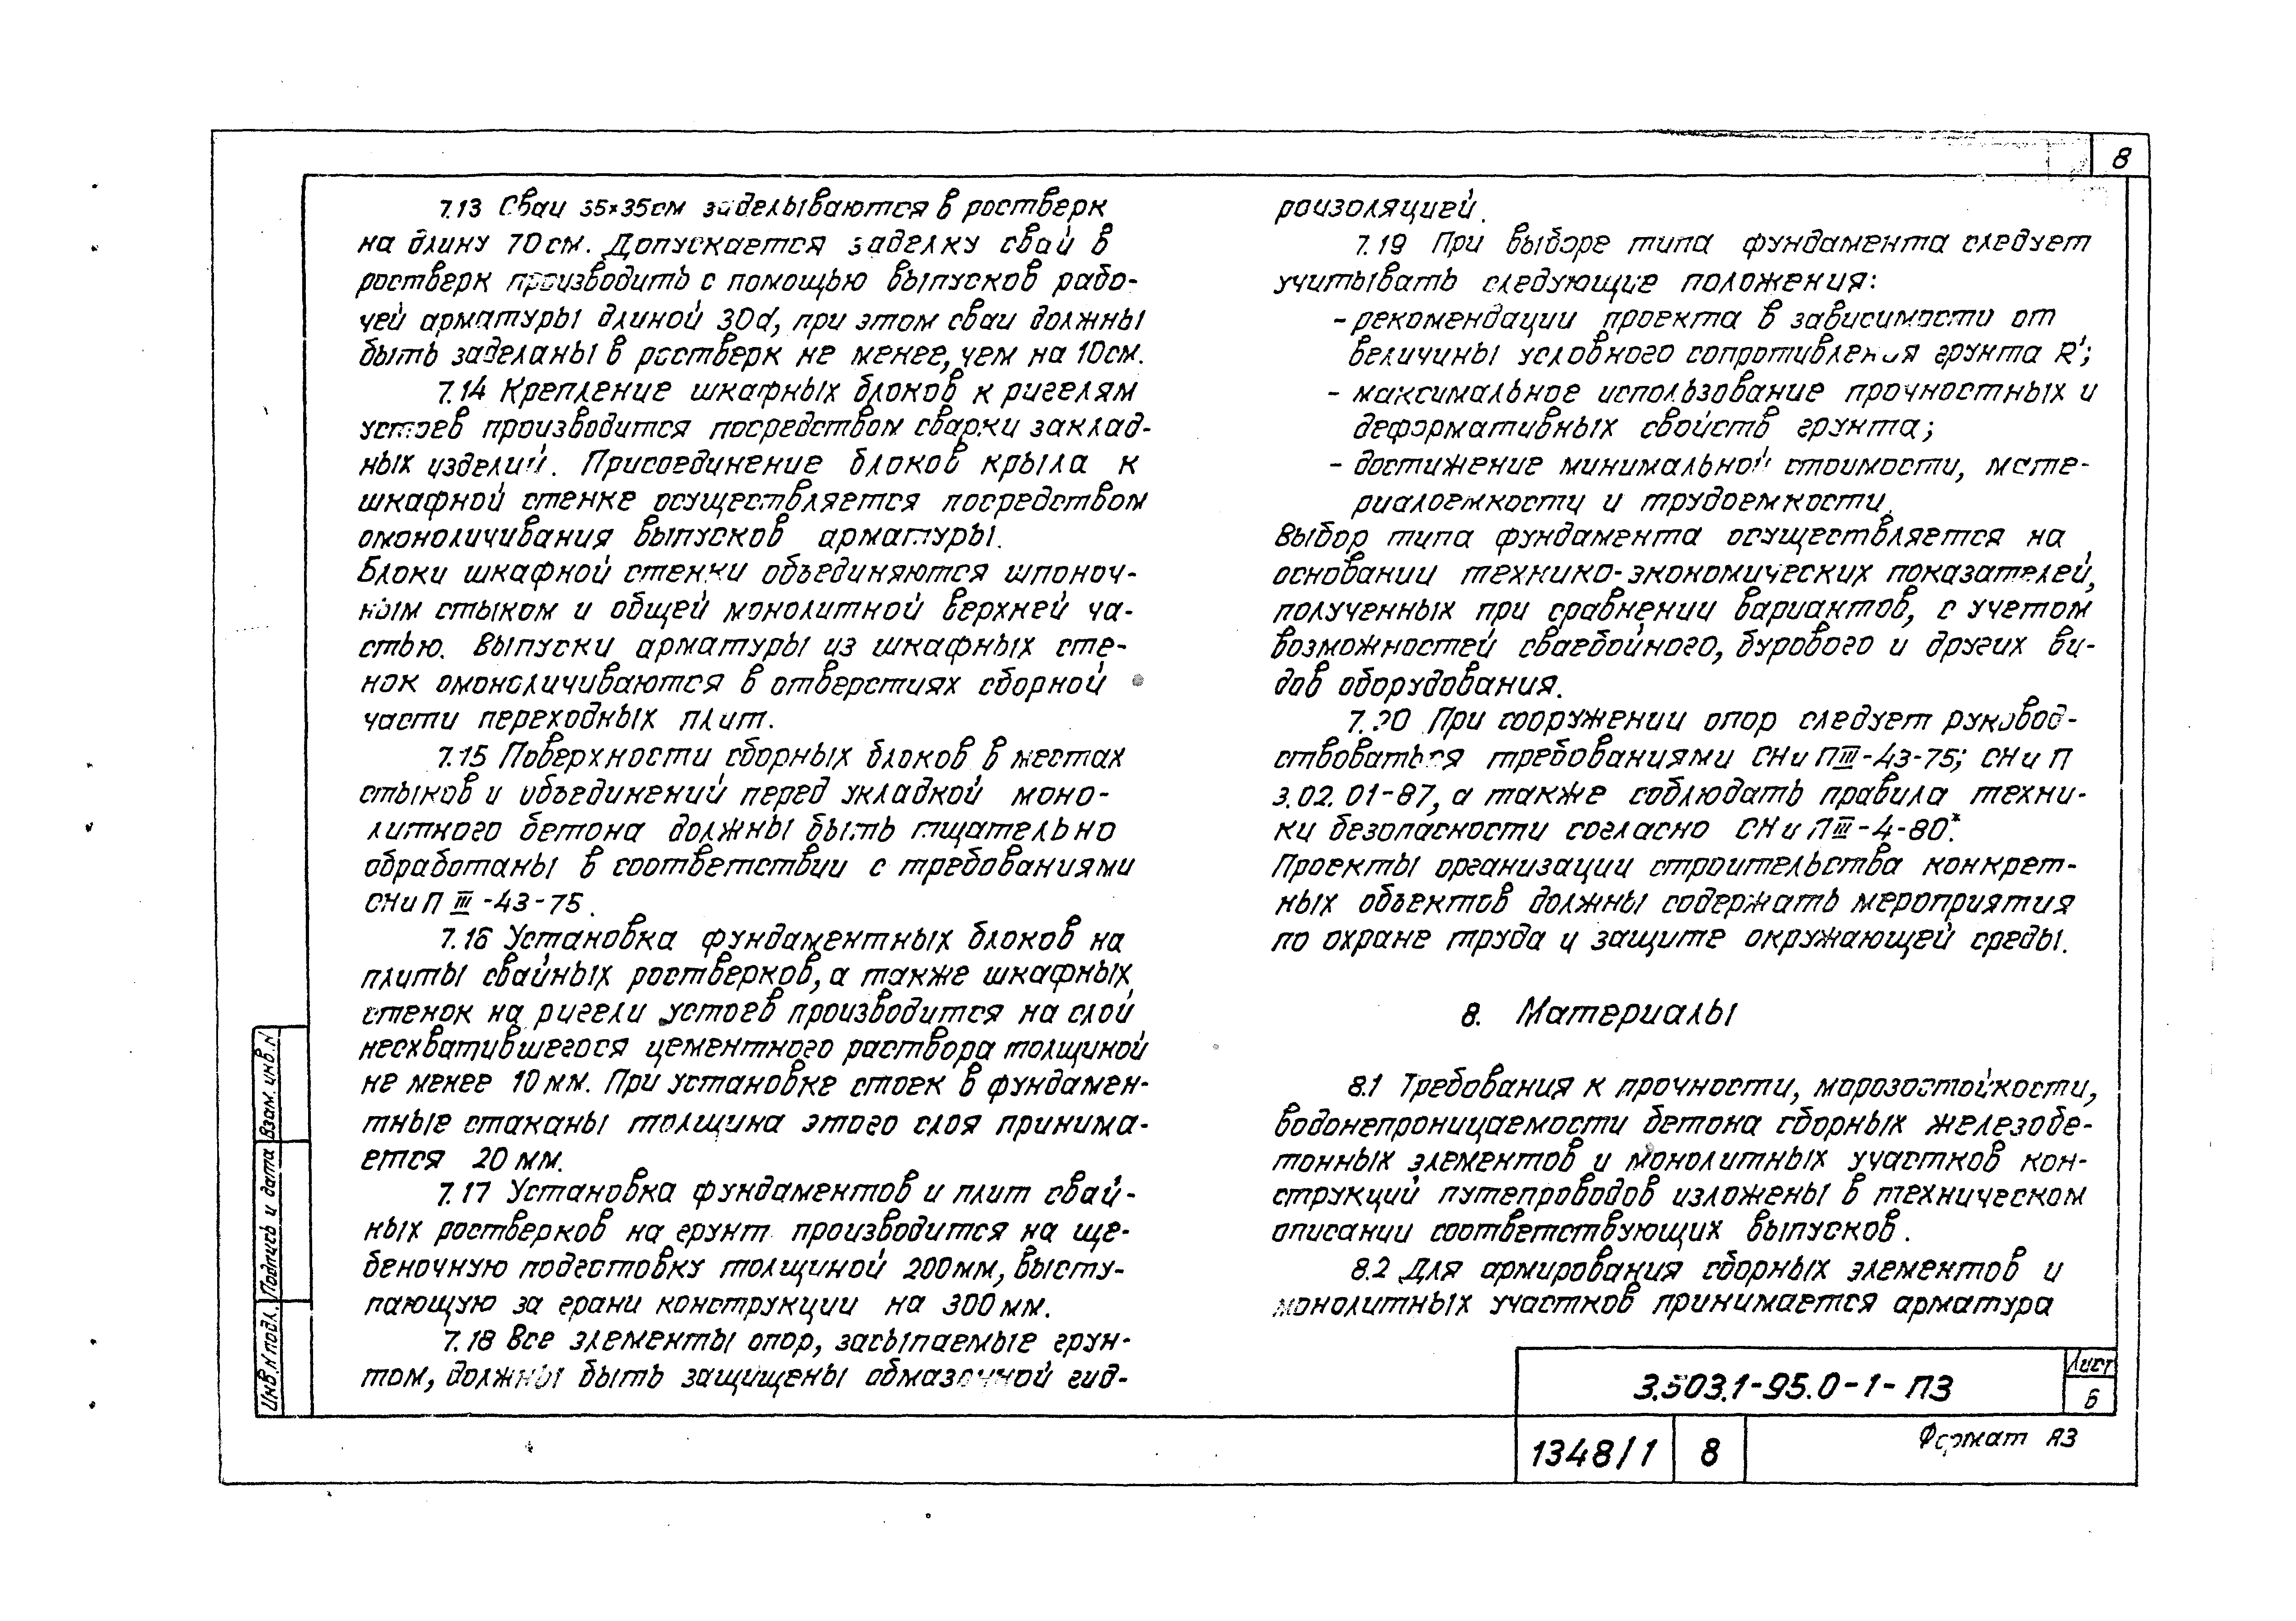 8
7.13 Сваи 35×35см заделываются в ростверк
на длину 70см. Допускается заделку свай в
ростверк производить с помощью выпусков рабо-
чей арматуры длиной 30d, при этом сваи должны
быть заделаны в ростверк не менее, чем на 10см.
7.14 Крепление шкафных блоков к ригелям
устоев производится посредством сварки заклад-
ных изделий. Присоединение блоков крыла к
шкафной стенке осуществляется посредством
омоноличивания выпусков арматуры.
Блоки шкафной стенки объединяются шпоноч-
ным стыком и общей монолитной верхней ча-
стью. Выпуски арматуры из шкафных сте-
нок омоноличиваются в отверстиях сборной
части переходных плит.
7.15 Поверхности сборных блоков в местах
стыков и объединений перед укладкой моно-
литного бетона должны быть тщательно
обработаны в соответствии с требованиями
СНиП III-43-75.
7.16 Установка фундаментных блоков на
плиты свайных ростверков, а также шкафных
стенок на ригели устоев производится на слой
несхватившегося цементного раствора толщиной
не менее 10мм. При установке стоек в фундамен-
тные стаканы толщина этого слоя принима-
ется 20мм.
7.17 Установка фундаментов и плит свай-
ных ростверков на грунт производится на ще-
беночную подготовку толщиной 200мм, высту-
пающую за грани конструкции на 300мм.
7.18 Все элементы опор, засыпаемые грун-
том, должны быть защищены обмазочной гид-
роизоляцией.
7.19 При выборе типа фундамента следует
учитывать следующие положения:
- рекомендации проекта в зависимости от
величины условного сопротивления грунта R';
- максимальное использование прочностных и
деформативных свойств грунта;
- достижение минимальной стоимости, мате-
риалоемкости и трудоемкости.
Выбор типа фундамента осуществляется на
основании технико-экономических показателей,
полученных при сравнении вариантов, с учетом
возможностей сваебойного, бурового и других ви-
дов оборудования.
7.20 При сооружении опор следует руковод-
ствоваться требованиями СНиП III-43-75; СНиП
3.02.01-87, а также соблюдать правила техни-
ки безопасности согласно СНиП III-4-80*.
Проекты организации строительства конкрет-
ных объектов должны содержать мероприятия
по охране труда и защите окружающей среды.
8. Материалы
8.1 Требования к прочности, морозостойкости,
водонепроницаемости бетона сборных железобе-
тонных элементов и монолитных участков кон-
струкций путепроводов изложены в техническом
описании соответствующих выпусков.
8.2 Для армирования сборных элементов и
монолитных участков принимается арматура
Инв.N подл. Подпись и дата Взам. инв.N
3.503.1-95.0-1-ПЗ
Лист
6
1348/1 8
Формат А3